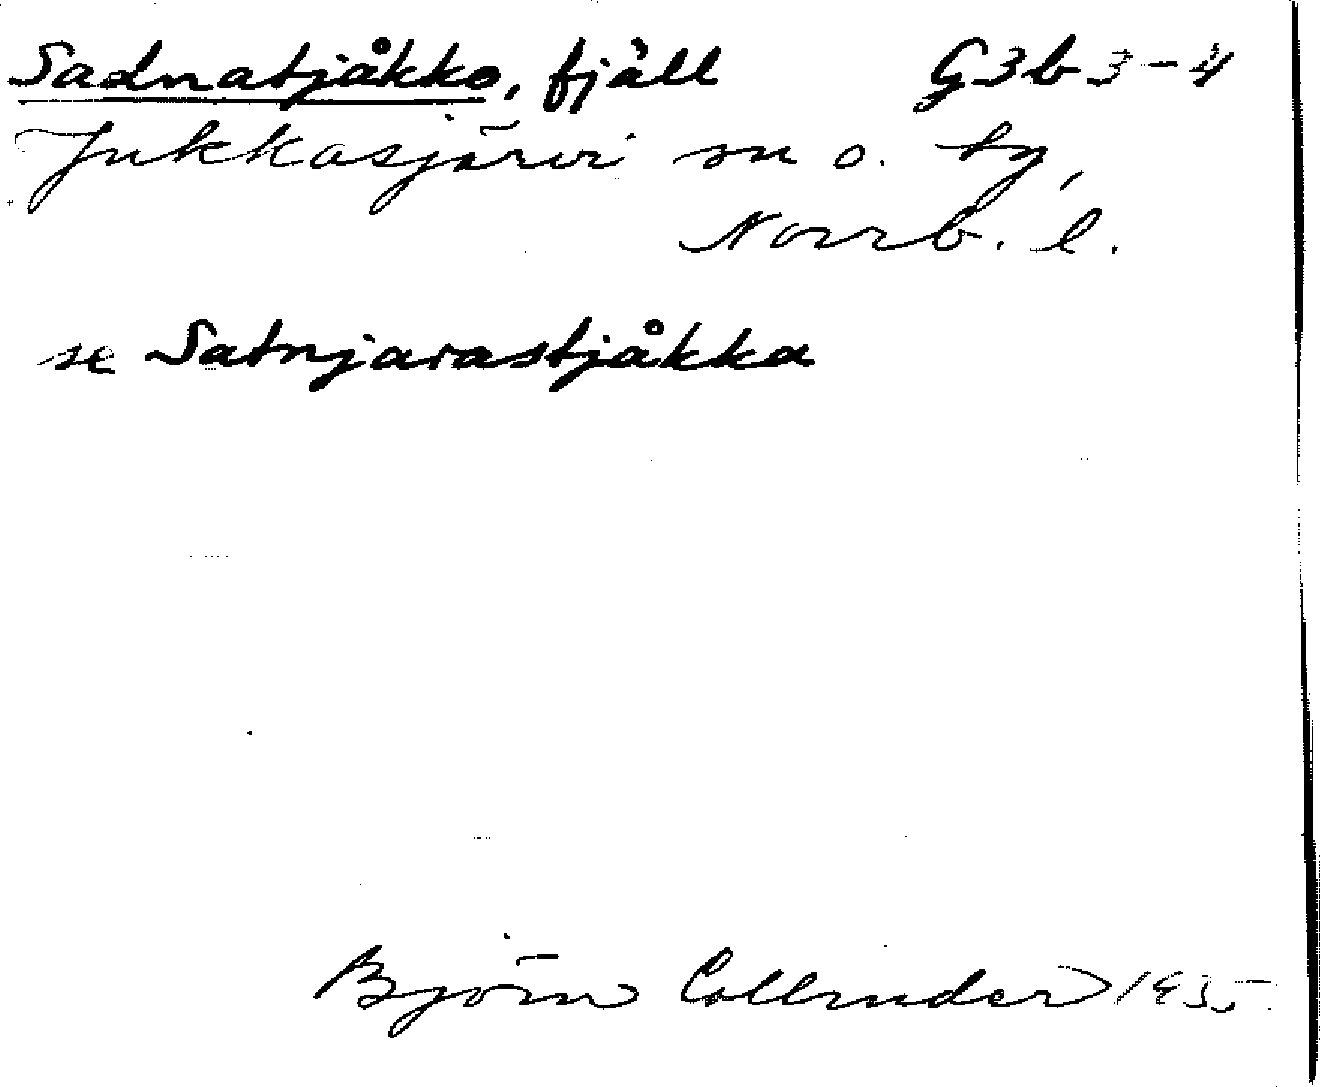 Sadnatjåkko, fjäll G3b3-4
Jukkasjärvi sn o. tg,
Norrb. l.
se Satnjarastjåkka
Björn Collinder 1935